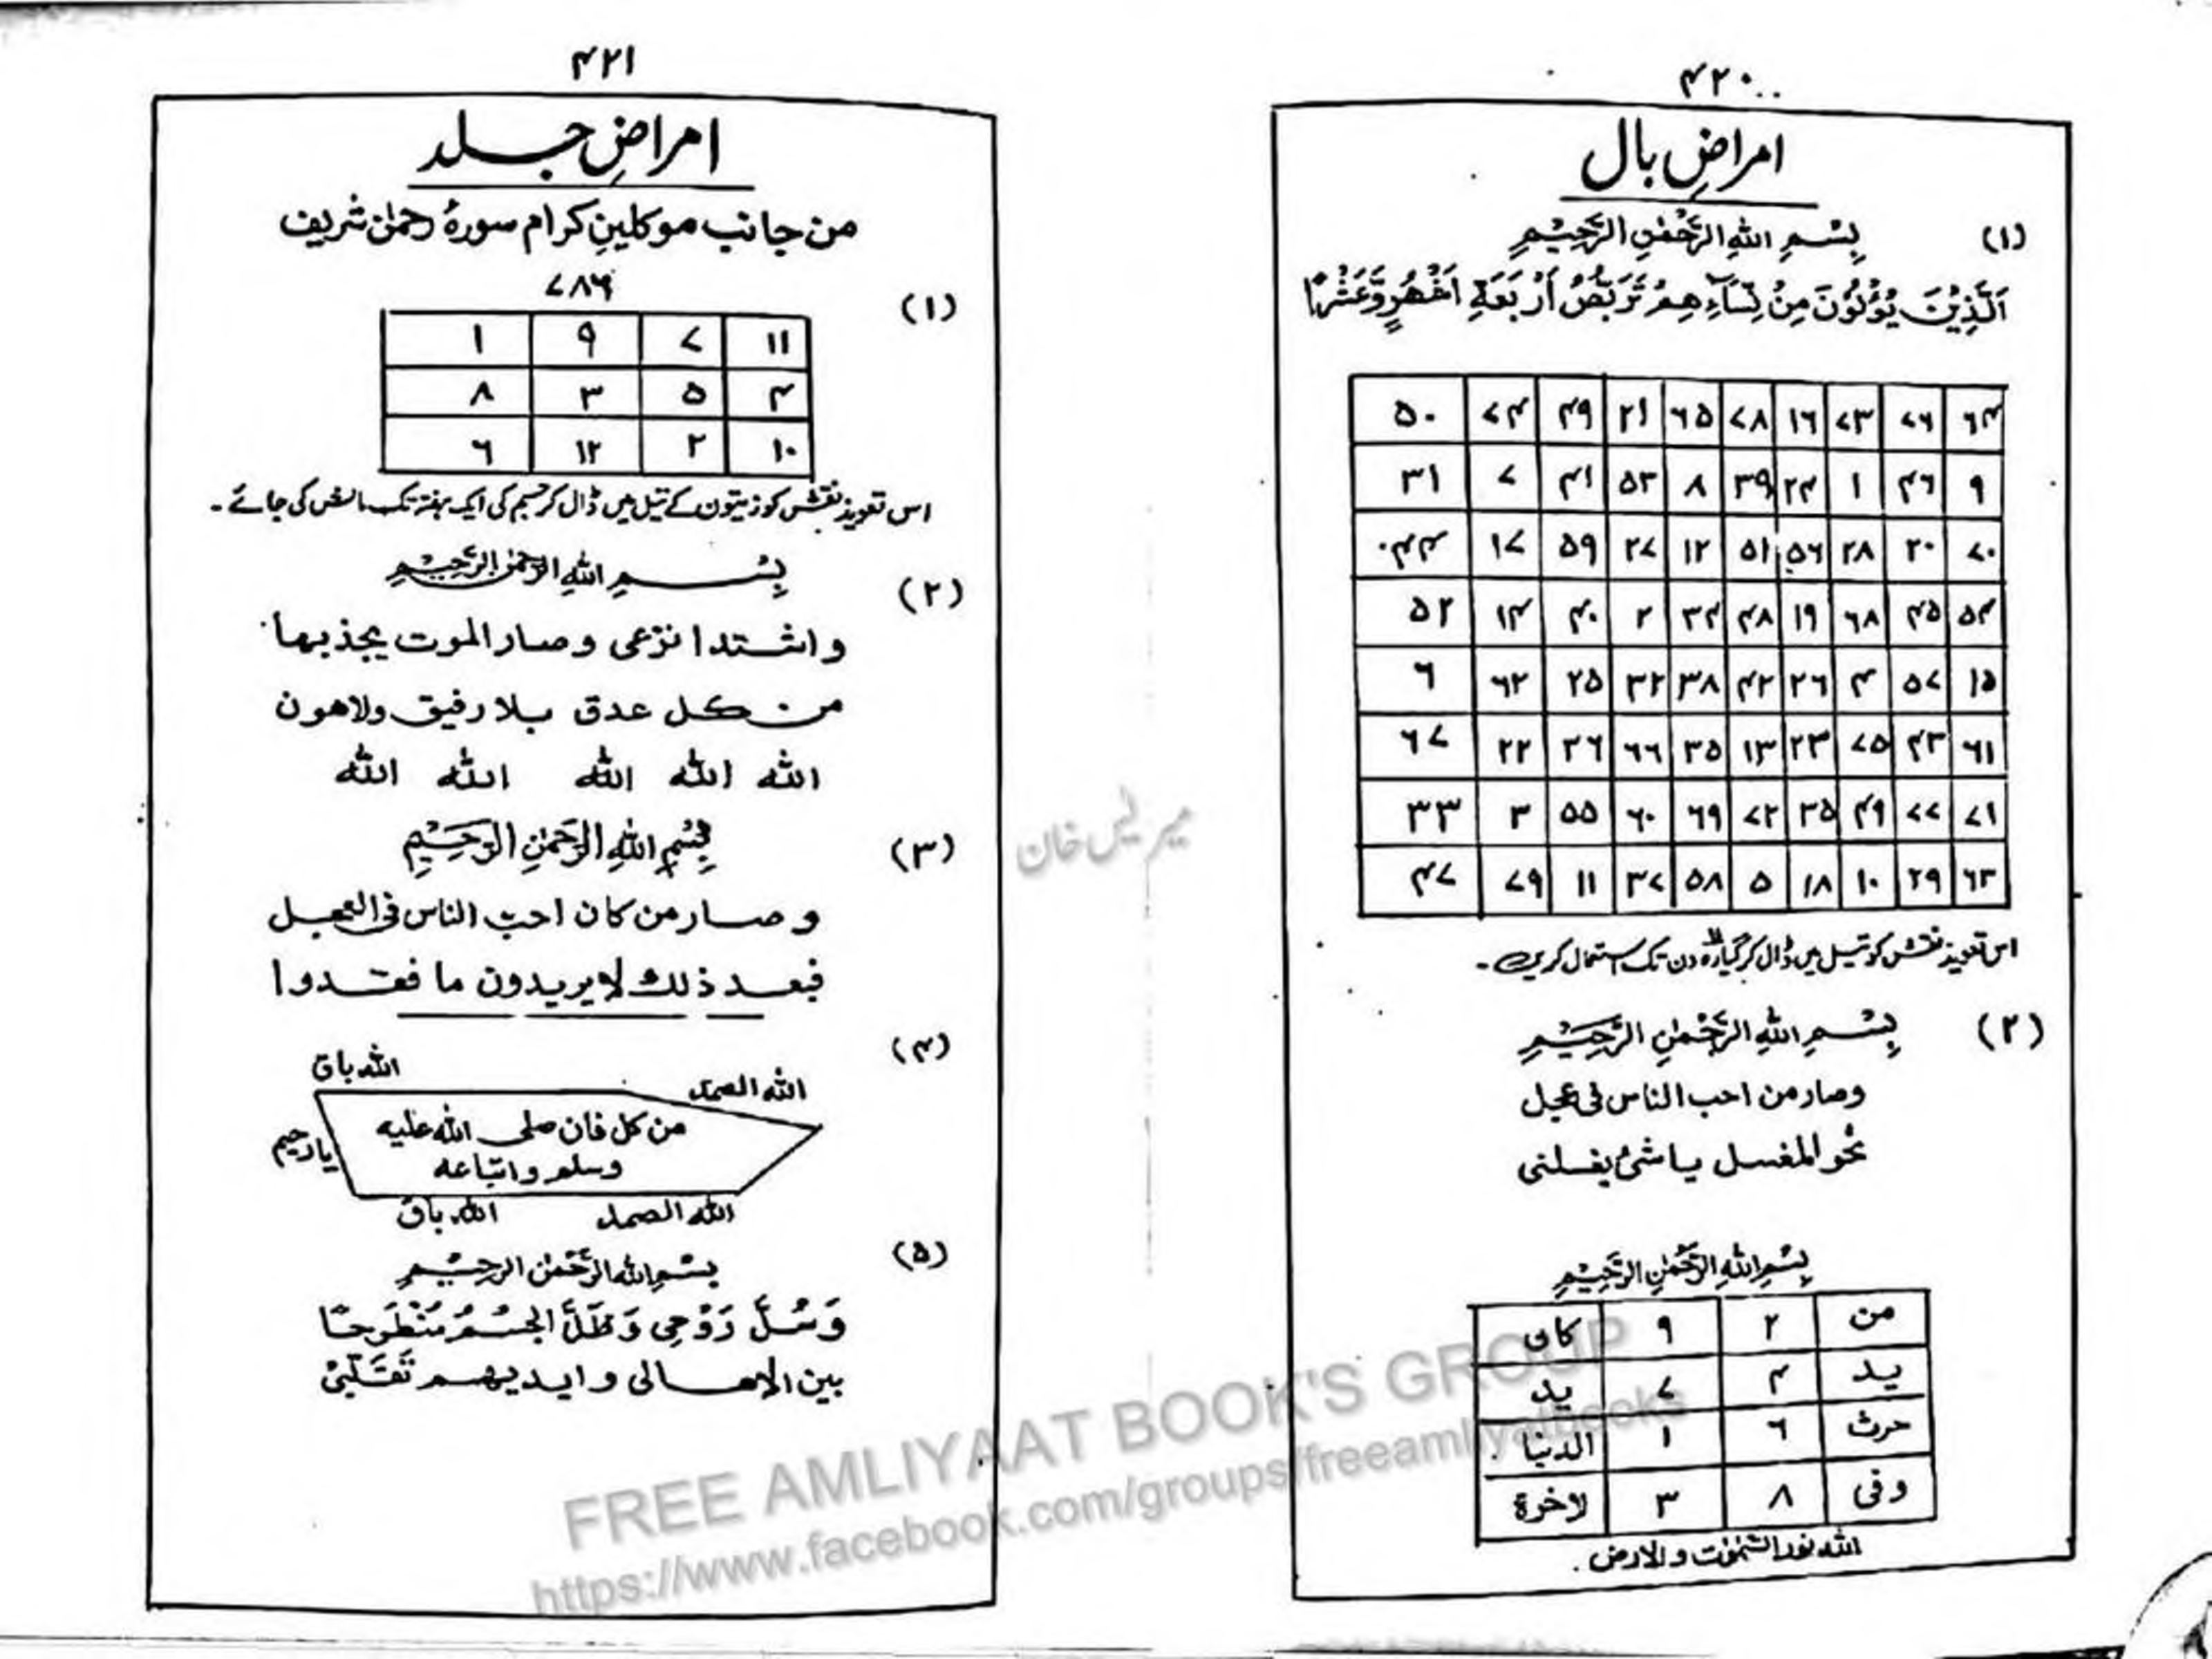 ۴۲۰
امراضِ بال
(۱)
بِسْمِ اللهِ الرَّحْمٰنِ الرَّحِيْمِ
اَلَّذِيْنَ يُؤْلُوْنَ مِنْ نِسَآءِهِمْ تَرَبُّصُ اَرْبَعَةِ اَشْهُرٍ وَّعَشْرًا
۶۴ ۷۶ ۷۳ ۱۶ ۷۸ ۶۵ ۲۱ ۴۹ ۷۴ ۵۰
۹ ۴۶ ۱ ۲۴ ۳۹ ۸ ۵۳ ۴۱ ۷ ۳۱
۷۰ ۲۰ ۲۸ ۵۶ ۵۱ ۱۲ ۲۷ ۵۹ ۱۷ ۴۴
۵۴ ۴۵ ۶۸ ۱۹ ۴۸ ۳۴ ۲ ۴۰ ۱۴ ۵۲
۱۵ ۵۷ ۴ ۲۶ ۴۲ ۳۸ ۳۲ ۲۵ ۶۲ ۶
۶۱ ۴۳ ۷۵ ۲۳ ۱۳ ۳۵ ۶۶ ۳۶ ۲۲ ۶۷
۷۱ ۷۷ ۴۹ ۳۵ ۷۲ ۶۹ ۶۰ ۵۵ ۳ ۳۳
۶۳ ۲۹ ۱۰ ۱۸ ۵ ۵۸ ۳۷ ۱۱ ۷۹ ۴۷
اس تعویذ نقش کو تیل میں ڈال کر گیارہ دن تک استعمال کریں۔
(۲)
بِسْمِ اللهِ الرَّحْمٰنِ الرَّحِيْمِ
وصار من احب الناس فی عجل
نحو المغسل یا شئ یغسلنی
بِسْمِ اللهِ الرَّحْمٰنِ الرَّحِيْمِ
من ۲ ۹ کان
ید ۴ ۷ ید
حرث ۶ ۱ الدنیا
وفی ۸ ۳ لاخرۃ
الله نور السمٰوٰت والارض
۴۲۱
امراضِ جلد
من جانب موکلینِ کرام سورۂ رحمٰن شریف
(۱)
۷۸۶
۱۱ ۷ ۹ ۱
۴ ۵ ۳ ۸
۱۰ ۲ ۱۲ ۶
اس تعویذ نقش کو زیتون کے تیل میں ڈال کر جسم کی ایک ہفتہ تک مالش کی جائے۔
(۲)
بِسْمِ اللهِ الرَّحْمٰنِ الرَّحِيْمِ
واشتدا نزعی وصار الموت یجذبها
من کل عدق بلا رفیق ولاهون
الله الله الله الله الله
(۳)
بِسْمِ اللهِ الرَّحْمٰنِ الرَّحِيْمِ
وصار من کان احب الناس فی العجل
فبعد ذلك لا یریدون ما فقدوا
(۴)
الله باق
الله الصمد
من کل فان صلی الله علیه
وسلم واتباعه
یا رحیم
الله باق
الله الصمد
(۵)
بِسْمِ اللهِ الرَّحْمٰنِ الرَّحِيْمِ
وَسُلَّ رَوْحِی وَظَلَّ الجِسْمُ مُنْطَرِحًا
بین الاهالی وایدیهم تَقَلِّبُنِیْ
میر لیس خان
FREE AMLIYAAT BOOK'S GROUP
https://www.facebook.com/groups/freeamliyatbooks